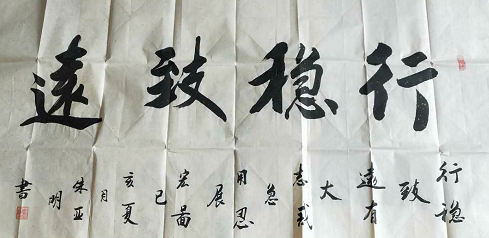 行稳致遠
行稳
致
遠有
大
志戒
急
用忍
展
宏圖
己
亥夏
月
朱亚
明
書